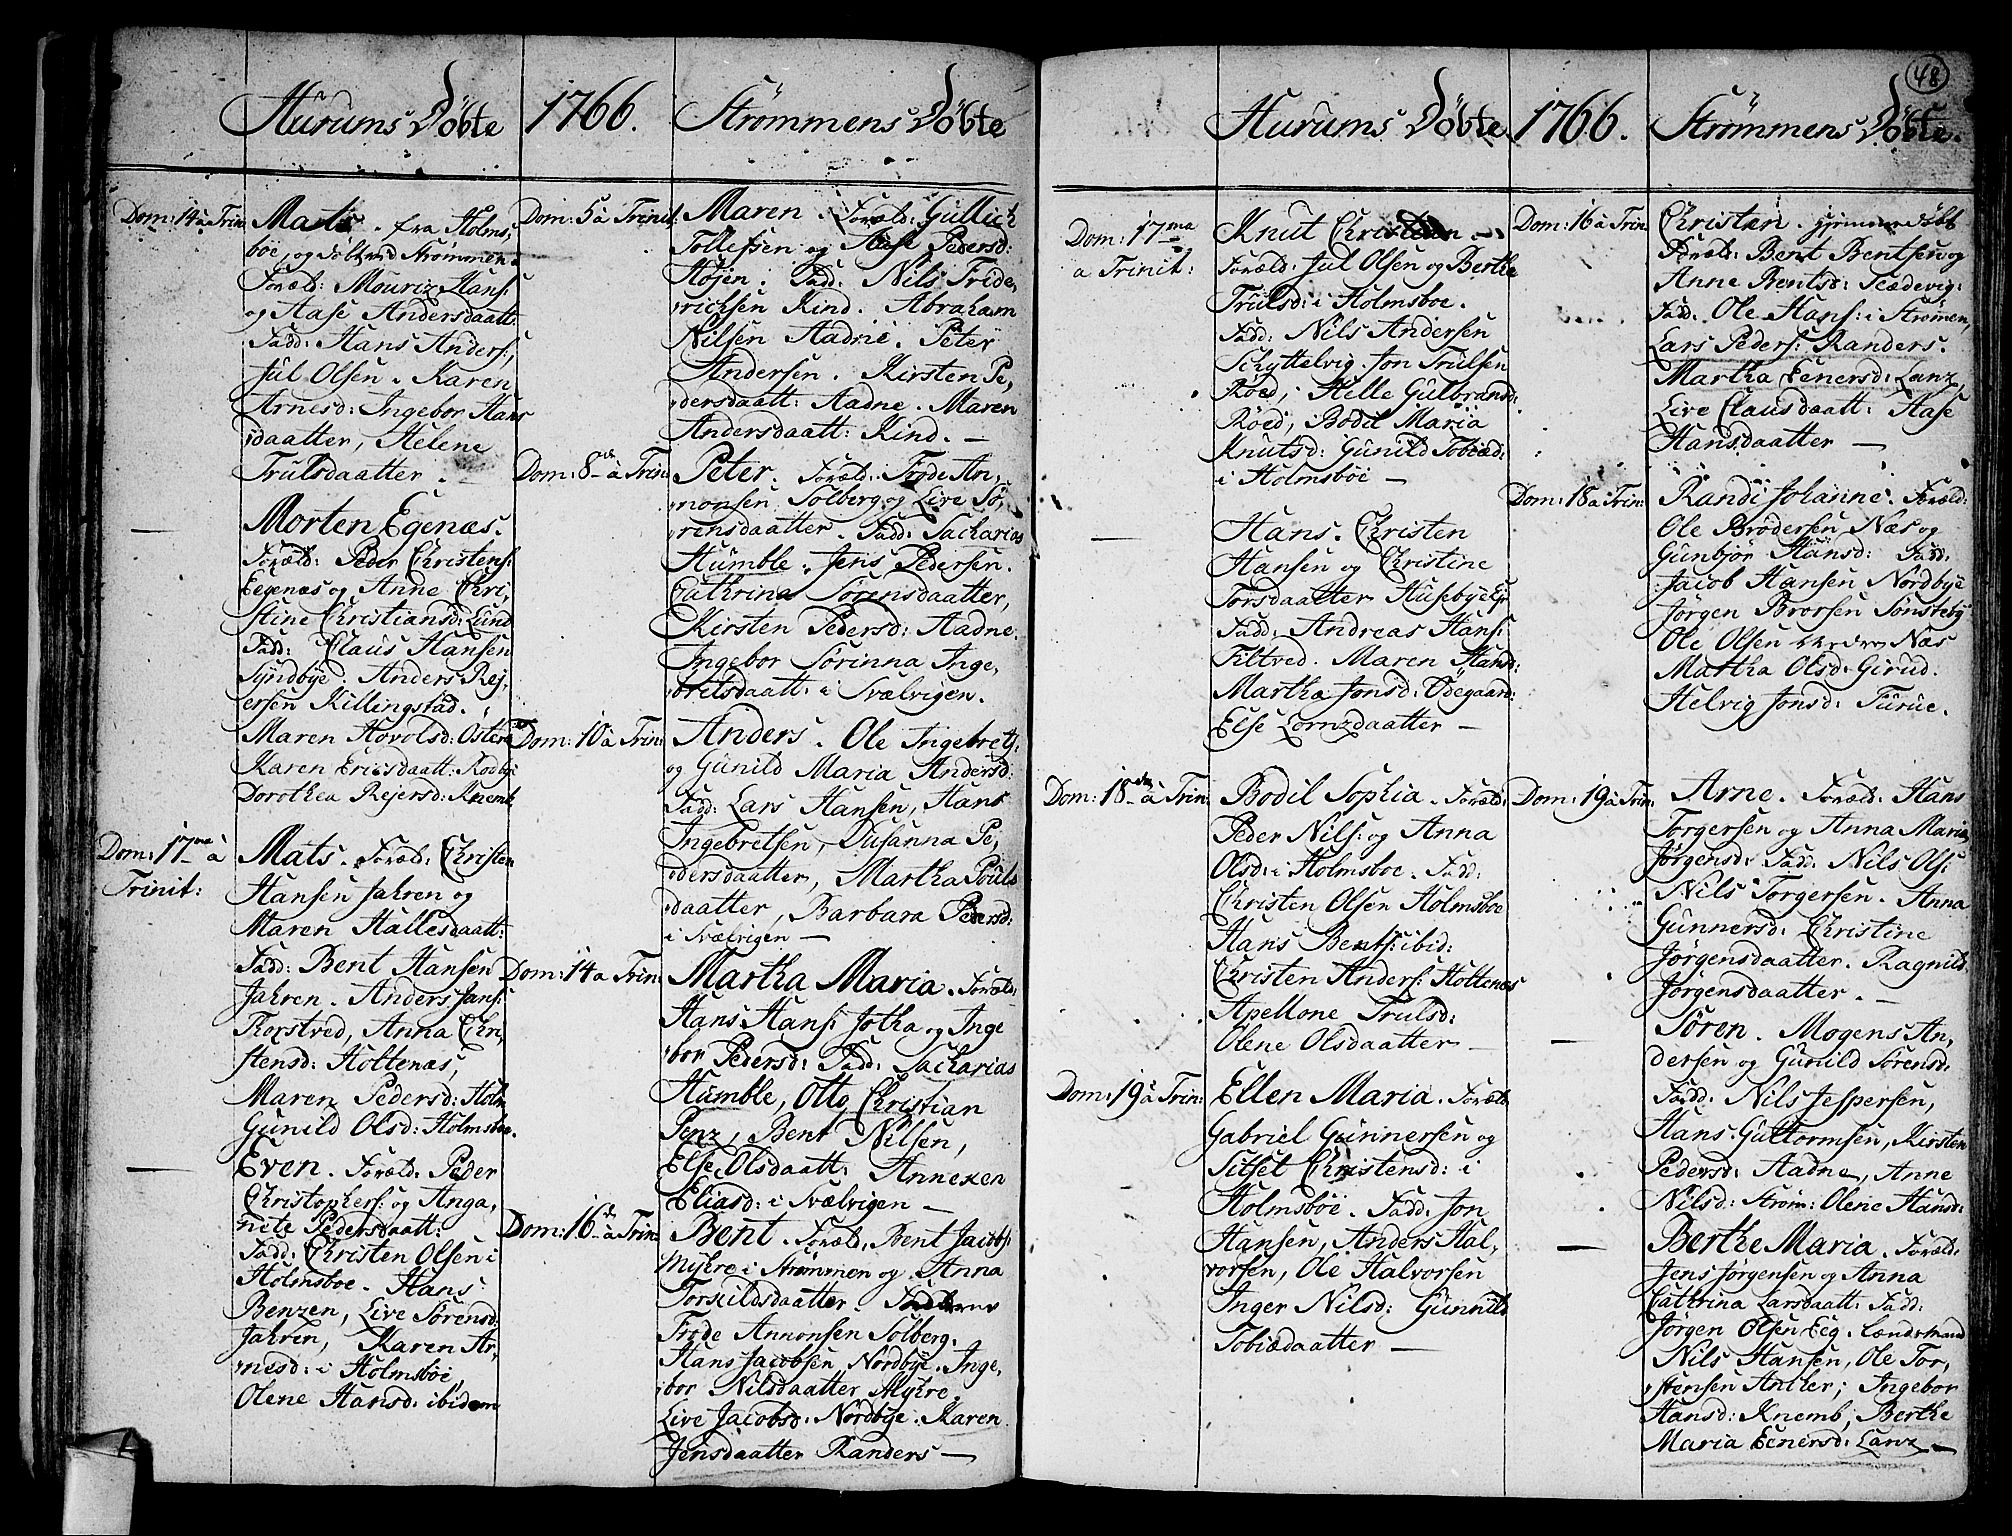 Hurums Döbte 1766. Strømmens Döbte
Dom: 14 a Trin:
Mats. fra Holms,
böe, og döbt ved Strømmen.
Foræld: Mouriz Hans:
og Aase Andersdaatt:
Fadd: Hans Anders:,
Jul Olsen. Karen
Arnesd: Ingebor Hans
daatter, Helene
Trulsdaatter.
—
Morten Egenæs.
Foræld: Peder Christens:
Egenæs og Anne Chri,
stine Christiansd: Lund
Fadd: Claus Hansen
Syndbye. Anders Rej,
ersen Killingstad.
Maren Hovolsd: Östern
Karen Ericsdaatt: Rodbye
Dorothea Rejersd: Knemb.
Dom: 17ma a
Trinit:
Mats. Foræld: Christen
Hansen Jahren og
Maren Hallesdaatt:
Fadd: Bent Hansen
Jahren. Anders Jans:
Thorstved, Anna Chri,
stensd: Holtenæs,
Maren Pedersd: Holm
Gunild Olsd: Holmsboe.
—
Even. Foræld: Peder
Christophers: og Anga,
nete Pedersdaatt:
Fadd: Christen Olsen i
Holmsboe. Hans
Benzen, Live Sørensd:
Jahren, Karen Ar,
nesd: i Holmsböe,
Olene Hansd: ibidem
Dom: 5 a Trinit:
Maren. Foræld: Gullich
Tollefsen og Aase Pedersd:
Højen. Fadd: Nils Fride,
richsen Kind. Abraham
Nilsen Aadne. Peter
Andersen. Kirsten Pe,
dersdaatt: Aadne. Maren
Andersdaatt: Kind. —
Dom: 8 a Trin:
Peter. Foræld: Frode An,
nonsen Solberg og Live Sö,
rensdaatter. Fadd: Sacharias
Humble. Jens Pedersen.
Cathrina Sörensdaatter,
Kirsten Pedersd: Aadne.
Ingebor Sorinna Inge,
bretsdaatt: i Svælvigen.
Dom: 10 a Trin:
Anders. Ole Ingebrets:
og Gunild Maria Andersd:
Fadd: Lars Hansen, Hans
Ingebretsen, Susanna Pe,
dersdaatter, Martha Pouls
daatter, Barbara Pedersd:
i Svælvigen —
Dom: 14 a Trin:
Martha Maria. Foræld:
Hans Hans: Jotha og Inge
bor Pedersd: Fadd: Sacharias
Humble, Otto Christian
Penz, Bent Nilsen,
Else Olsdaatt: Annexen
Eliasd: i Svælvigen —
Dom: 16 a Trin:
Bent. Foræld: Bent Jacobs:
Myhre i Strømmen og Anna
Torskildsdaatter. Fadderne
Frode Annonsen Solberg.
Hans Jacobsen, Nordbye. Inge,
bor Nilsdaatter Myhre,
Live Jacobsd: Nordbye. Karen
Jensdaatter Randers —
48
Hurums Döbte 1766. Strømmens Döbte.
Dom: 17ma
a Trinit:
Knut Christian —
Foræld: Jul Olsen og Berthe
Trulsd: i Holmsboe.
Fadd: Nils Andersen
Schyttelvig. Jon Trulsen
Röed, Helle Gulbrands:
Röed, Bodil Maria
Knutsd: Gunild Tobiæd:
i Holmsböe —
—
Hans. Christen
Hansen og Christine
Torsdaatter Husebye Ejr
Fadd: Andreas Hans:
Filtved. Maren Hansd:
Martha Jonsd: Ödegaard:
Else Lornzdaatter —
Dom: 18 a Trin:
Bodil Sophia. Foræld:
Peder Nils: og Anna
Olsd: i Holmsboe. Fadd:
Christen Olsen Holmsboe
Hans Bents: ibid:
Christen Anders: Holtenæs
Apellone Trulsd:
Olene Olsdaatter —
Dom: 19 a Trin:
Ellen Maria. Foræld:
Gabriel Gunnersen og
Sitsel Christensd: i
Holmsböe. Fadd: Jon
Hansen, Anders Hal,
vorsen, Ole Halvorsen
Inger Nilsd: Gunnild
Tobiædaatter —
Dom: 16 a Trin:
Christen. hjemmedöbt
Foræld: Bent Bentsen og
Anne Bentsd: Tædevig:
Fadd: Ole Hans: i Strömen,
Lars Peders: Randers.
Martha Eenersd: Lanz,
Live Clausdaatt: Aase
Hansdaatter —
Dom: 18 a Trin:
Randi Johanne. Foræld:
Ole Brödersen Næs og
Gunbjör Hansd: Fadd:
Jacob Hansen Nordbye
Jörgen Brorsen Sönsteby
Ole Olsen Næs
Martha Olsd: Girud.
Helvig Jonsd: Turue.
Dom: 19 a Trin:
Arne. Foræld: Hans
Torgersen og Anna Maria
Jörgensd: Fadd: Nils Ols:
Nils Torgersen. Anna
Gunnersd: Christine
Jörgensdaatter. Ragnild
Jörgensdaatter. —
—
Sören. Mogens An,
dersen og Gunild Sörensd:
Fadd: Nils Jespersen,
Hans Guttormsen, Kirsten
Pedersd: Aadne, Anne
Nilsd: Ström: Olene Hansd:
—
Berthe Maria. Foræld:
Jens Jörgensen og Anna
Cathrina Larsdaatt: Fadd:
Jörgen Olsen Eeg. Lændsmand
Nils Hansen, Ole Tor,
stensen Antler; Ingebor
Hansd: Knemb, Berthe
Maria Eenersd: Lanz —